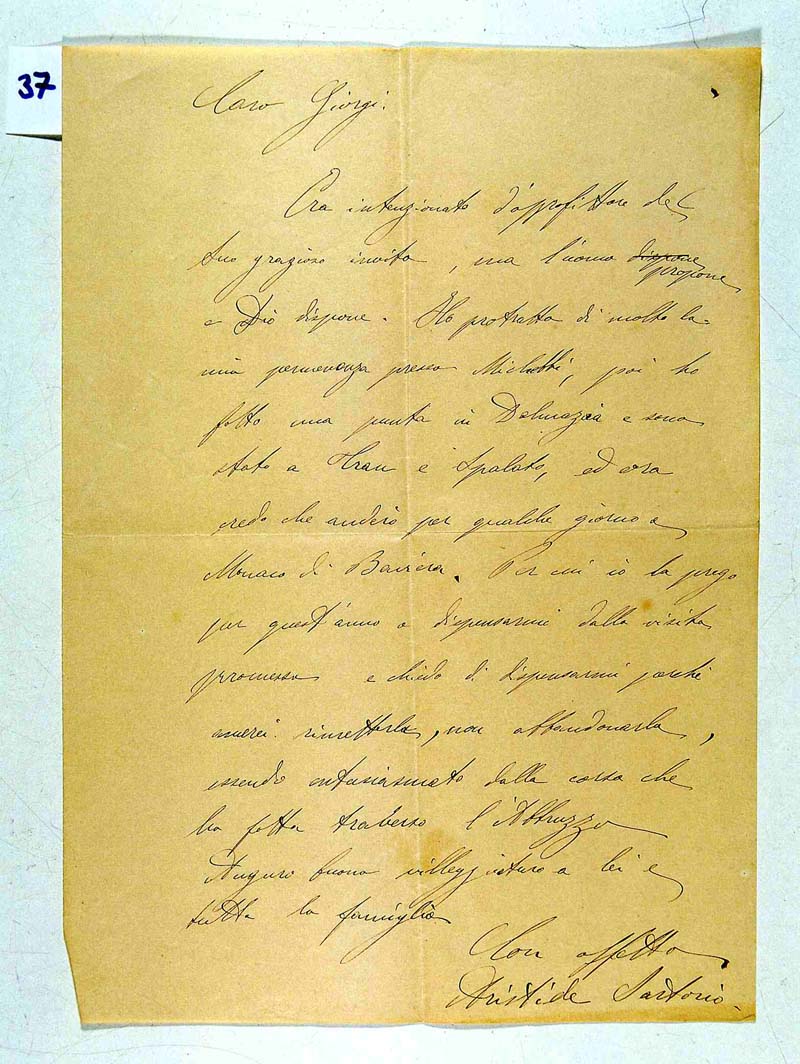 37
Caro Giorgi.
Era intenzionato d'approfittare del
suo grazioso invito, ma l'uomo dispone
propone
e Dio dispone. Ho protratta di molto la
mia permanenza presso Michetti, poi ho
fatto una punta in Dalmazia e sono
stato a Trau e Spalato, ed ora
credo che anderò per qualche giorno a
Monaco di Baviera. Per cui io la prego
per quest'anno a dispensarmi dalla visita
promessa e chiedo di dispensarmi perchè
amerei rimetterla, non abbandonarla,
essendo entusiasmato dalla corsa che
ho fatta traverso l'Abbruzzo
Auguro buona villeggiatura a lei e
tutta la famiglia
Con affetto
Aristide Sartorio.